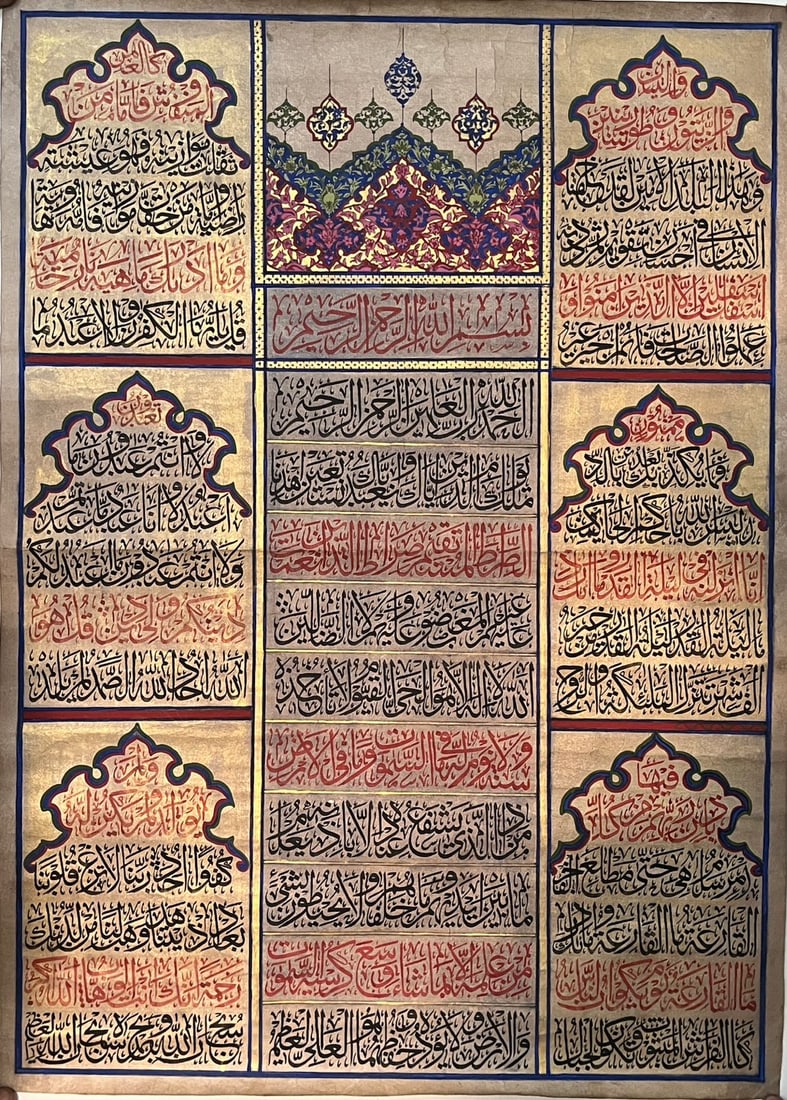 بسم الله الرحمن الرحيم
الحمد لله رب العالمين الرحمن الرحيم
مالك يوم الدين إياك نعبد وإياك نستعين اهدنا
الصراط المستقيم صراط الذين أنعمت
عليهم غير المغضوب عليهم ولا الضالين
الله لا إله إلا هو الحي القيوم لا تأخذه
سنة ولا نوم له ما في السموات وما في الأرض
من ذا الذي يشفع عنده إلا بإذنه يعلم
ما بين أيديهم وما خلفهم ولا يحيطون بشيء
من علمه إلا بما شاء وسع كرسيه السموات
والأرض ولا يؤده حفظهما وهو العلي العظيم
والتين
والزيتون وطور سينين
وهذا البلد الأمين لقد خلقنا
الإنسان في أحسن تقويم ثم رددناه
أسفل سافلين إلا الذين آمنوا و
عملوا الصالحات فلهم أجر غير
ممنون
فما يكذبك بعد بالدين
أليس الله بأحكم الحاكمين
إنا أنزلناه في ليلة القدر وما أدراك
ما ليلة القدر ليلة القدر خير من
ألف شهر تنزل الملئكة والروح
فيها
بإذن ربهم من كل
أمر سلام هي حتى مطلع الفجر
القارعة ما القارعة وما أدراك
ما القارعة يوم يكون الناس
كالفراش المبثوث وتكون الجبال
كالعهن
المنفوش فأما من
ثقلت موازينه فهو في عيشة
راضية وأما من خفت موازينه فأمه هاوية
وما أدراك ما هيه نار حامية
قل يا أيها الكفرون لا أعبد ما
تعبدون
ولا أنتم عابدون ما
أعبد ولا أنا عابد ما عبدتم
ولا أنتم عابدون ما أعبد لكم
دينكم ولي دين قل هو
الله أحد الله الصمد لم يلد
ولم
يولد ولم يكن له
كفوا أحد ربنا لا تزغ قلوبنا
بعد إذ هديتنا وهب لنا من لدنك
رحمة إنك أنت الوهاب الله أكبر
سبحان الله وبحمده سبحان الله العظيم